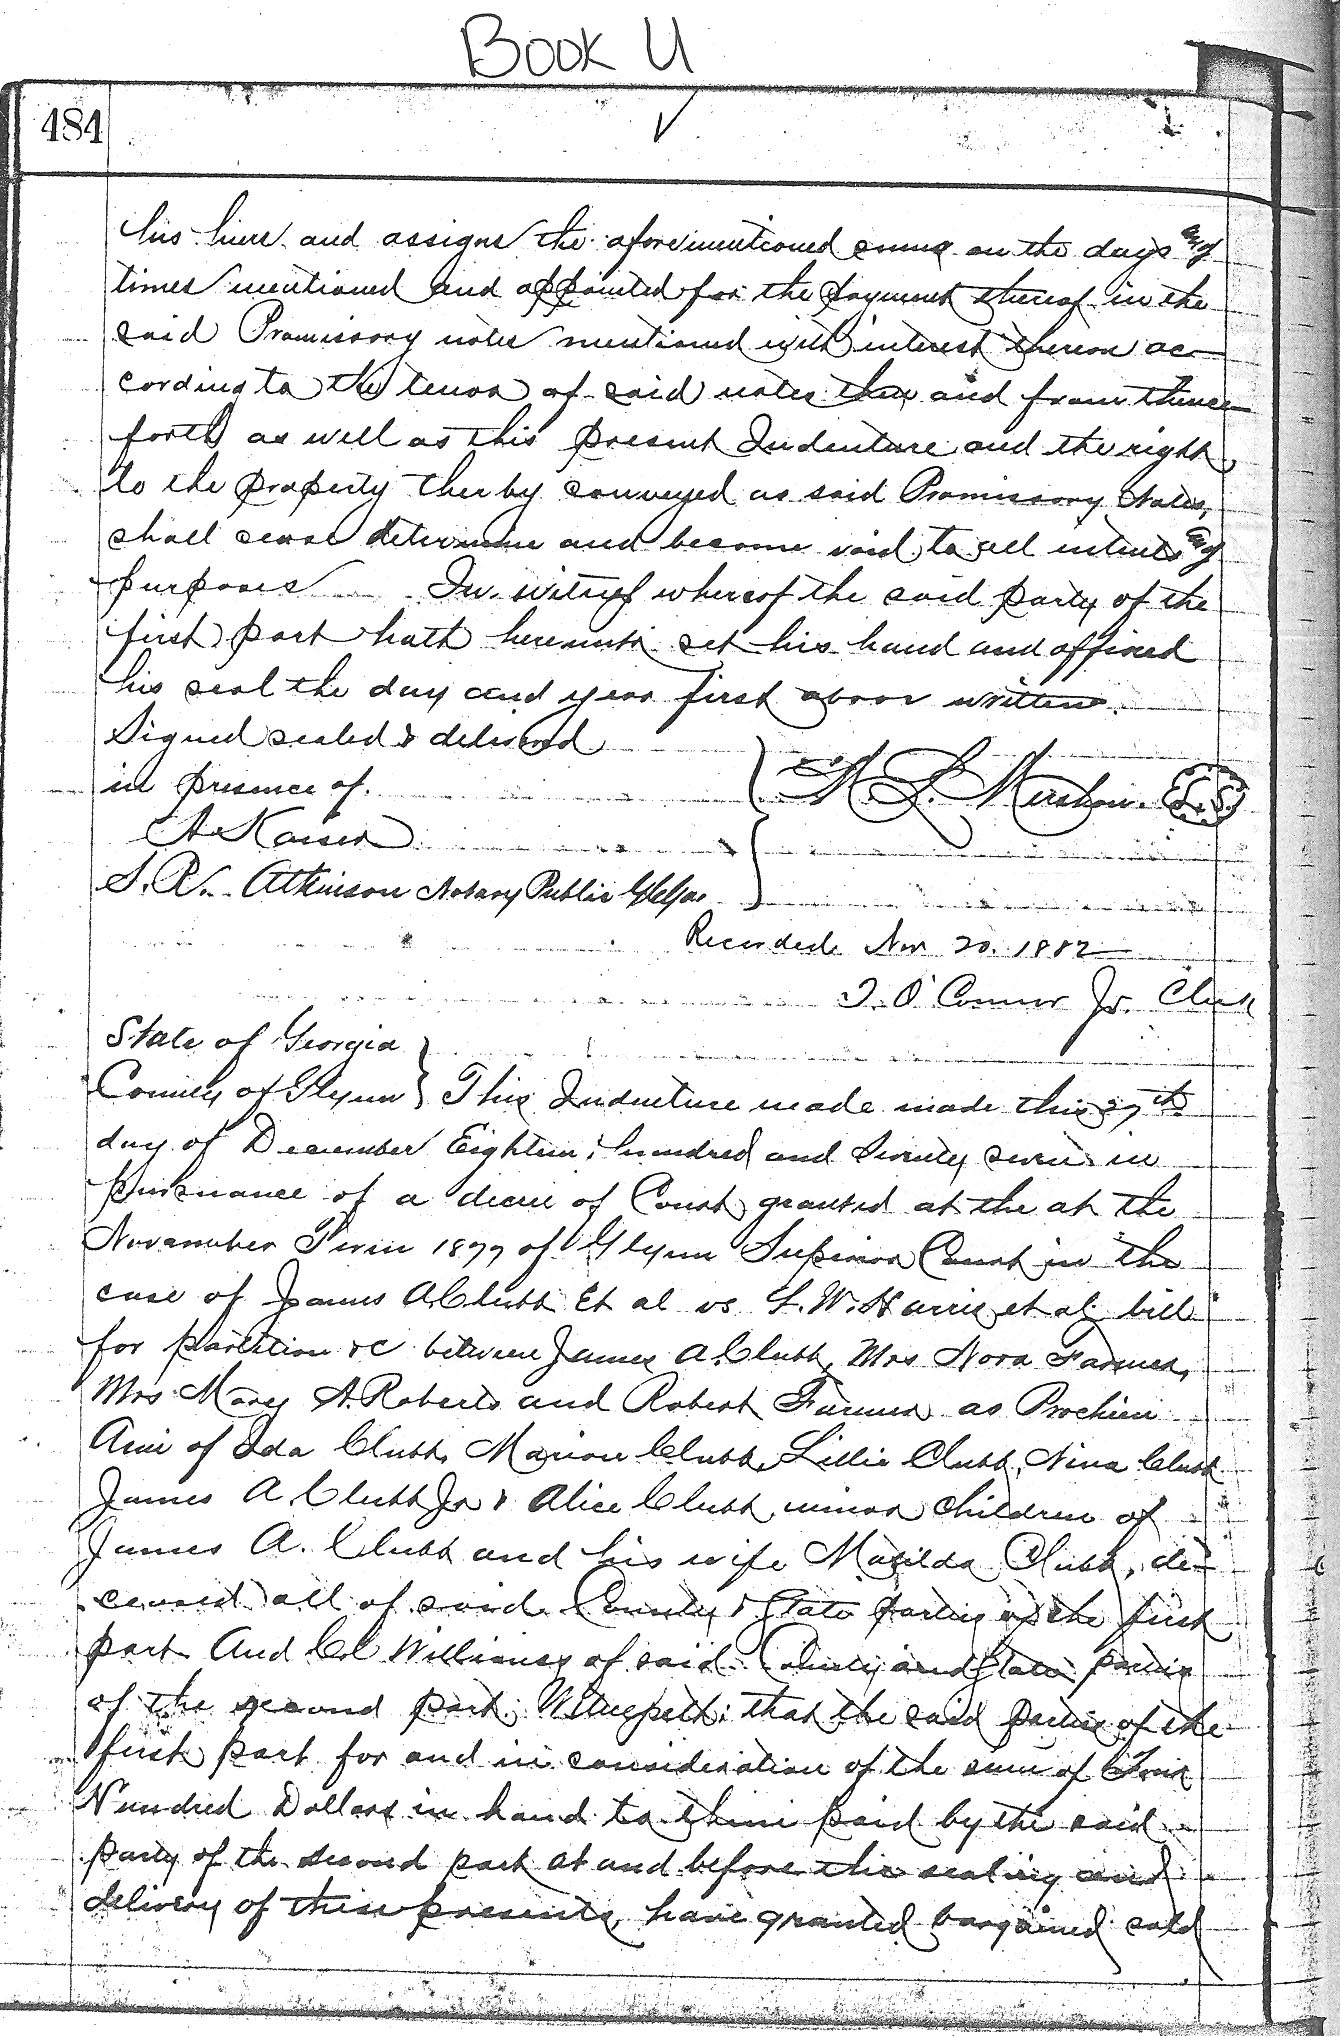 Book U
484
his hiers and assigns the aforementioned sums on the days and
times mentioned and appointed for the payment thereof in the
said Promissory notes mentioned with interest thereon ac-
cording to the tenor of said notes then and from thence
forth as well as this present Indenture and the right
to the property therby conveyed as said Promissory Notes,
shall cease determine and become void to all intents and
purposes In witness whereof the said party of the
first part hath hereunto set his hand and affixed
his seal the day and year first above written.
Signed sealed & delivered
in presence of. M. L. Mershon. L.S.
A Kaiser
S. R. Atkinson Notary Public
Recorded Nov 20. 1882
T. O'Connor Jr. Clerk
State of Georgia
County of Glynn } This Indenture made made this 27th
day of December Eighteen hundred and Seventy seven in
pursuance of a decree of Court granted at the at the
November Term 1877 of Glynn Superior Court in the
case of James A. Clubb Et al vs L. W. Harris et al bill
for partition &c between James A. Clubb, Mrs Nora Farmer,
Mrs Mary A. Roberts and Robert Farmer as Prochien
Ami of Ida Clubb, Marion Clubb, Lillie Clubb, Nina Clubb
James A. Clubb Jr & Alice Clubb minor children of
James A. Clubb and his wife Matilda Clubb, de-
ceased all of said County & State parties of the first
part And Williams of said County and State parties
of the second part, Witnesseth: that the said parties of the
first part for and in consideration of the sum of Four
Hundred Dollars in hand to them paid by the said
party of the second part at and before the sealing and
delivery of these presents have granted bargained sold